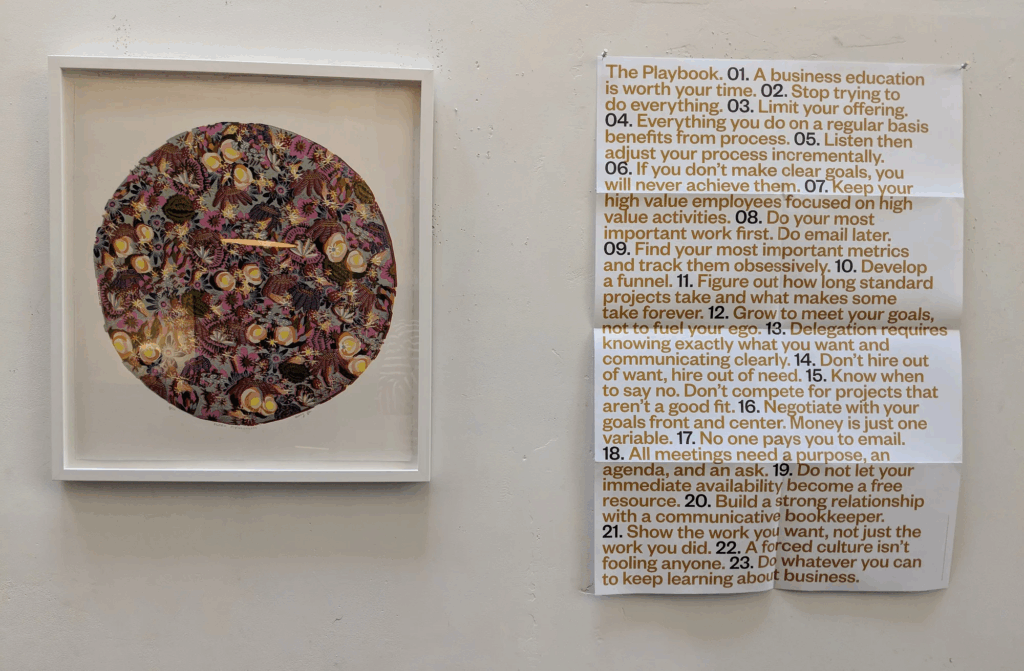 The Playbook. 01. A business education
is worth your time. 02. Stop trying to
do everything. 03. Limit your offering.
04. Everything you do on a regular basis
benefits from process. 05. Listen then
adjust your process incrementally.
06. If you don't make clear goals, you
will never achieve them. 07. Keep your
high value employees focused on high
value activities. 08. Do your most
important work first. Do email later.
09. Find your most important metrics
and track them obsessively. 10. Develop
a funnel. 11. Figure out how long standard
projects take and what makes some
take forever. 12. Grow to meet your goals,
not to fuel your ego. 13. Delegation requires
knowing exactly what you want and
communicating clearly. 14. Don't hire out
of want, hire out of need. 15. Know when
to say no. Don't compete for projects that
aren't a good fit. 16. Negotiate with your
goals front and center. Money is just one
variable. 17. No one pays you to email.
18. All meetings need a purpose, an
agenda, and an ask. 19. Do not let your
immediate availability become a free
resource. 20. Build a strong relationship
with a communicative bookkeeper.
21. Show the work you want, not just the
work you did. 22. A forced culture isn't
fooling anyone. 23. Do whatever you can
to keep learning about business.